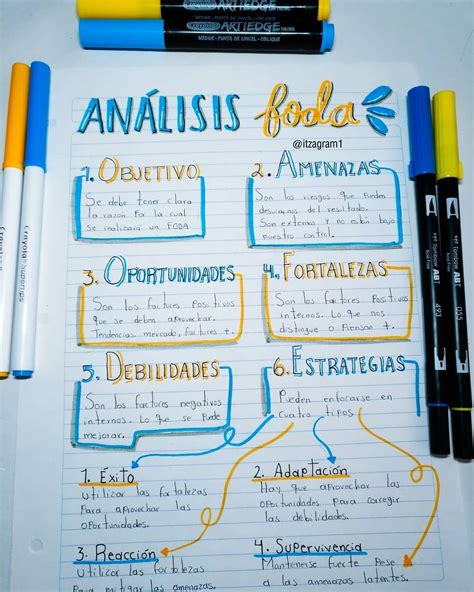 ARTEDGE
WEDGE • PUNTA DE CINCEL • OBLIQUE
ARTEDGE
WEDGE • PUNTA DE CINCEL • OBLIQUE
ANÁLISIS foda
@itzagram1
1. OBJETIVO
Se debe tener clara
la razón por la cual
se realizará un FODA
2. AMENAZAS
Son los riesgos que pueden
desviarnos del resultado.
Son externos y no están bajo
nuestro control.
3. OPORTUNIDADES
Son los factores positivos
que se deben aprovechar.
Tendencias mercado, factores +.
4. FORTALEZAS
Son los factores positivos
internos. Lo que nos
distingue o
5. DEBILIDADES
Son los factores negativos
internos. Lo que se puede
mejorar.
6. ESTRATEGIAS
Pueden enfocarse en
cuatro tipos
1. Éxito
Utilizar las fortalezas
para aprovechar las
oportunidades.
2. Adaptación
Hay que aprovechar las
oportunidades para corregir
las debilidades.
3. Reacción
Utilizar las fortalezas
Para mitigar las amenazas.
4. Supervivencia
Mantenerse fuerte pese
a las amenazas latentes.
Crayola SuperTips
Tombow
ABT
493
Tombow
ABT
055